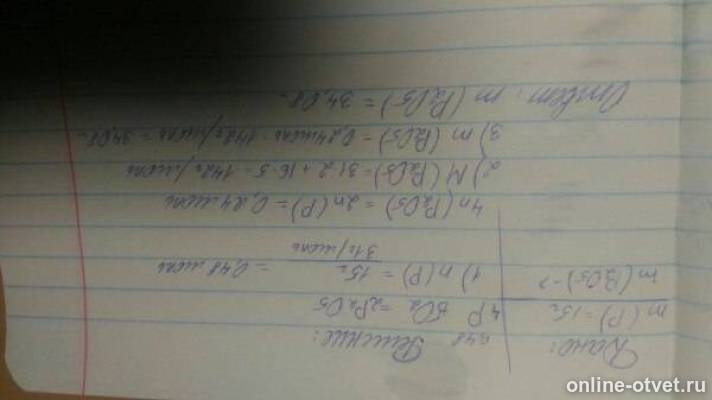 Дано:
m(P)=15г
m(P₂O₅)-?
Решение:
0,48
4P 5O₂ =2P₂O₅
1) n(P) = 15г / 31г/моль = 0,48 моль
4n(P₂O₅) = 2n(P) = 0,24 моль
2) M(P₂O₅) = 31·2 + 16·5 = 142г/моль
3) m(P₂O₅) = 0,24моль · 142г/моль = 34,08г
Ответ: m(P₂O₅) = 34,08г
online-otvet.ru